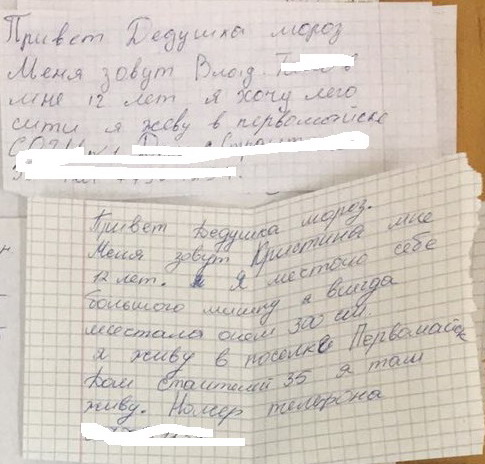 Привет Дедушка мороз
Меня зовут Влад
мне 12 лет я хочу лего
сити я жеву в первомайске
Привет Дедушка мороз.
Меня зовут Кристина мне
12 лет. Я местою себе
большого мишку я всигда
местала о нем 300 см.
я живу в поселке Первомайск
Дом 35 я там
живу. Номер телефона